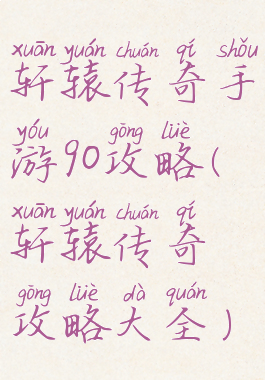 xuān yuán chuán qí shǒu
轩辕传奇手
yóu gōng lüè
游90攻略(
xuān yuán chuán qí
轩辕传奇
gōng lüè dà quán
攻略大全)